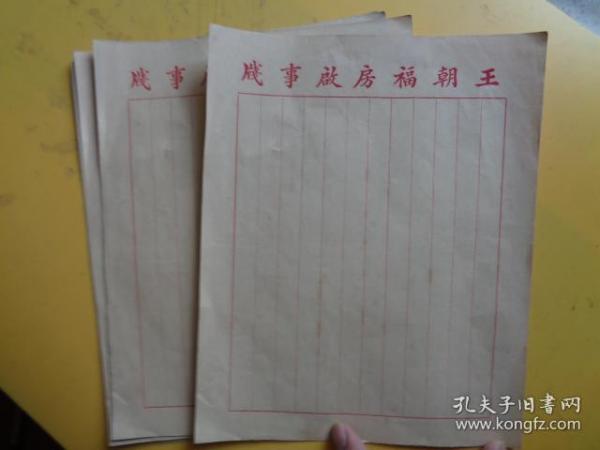 王朝福房啟事牋
事牋
孔夫子旧书网
www.kongfz.com